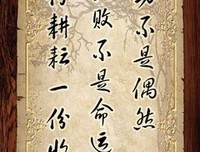 功不是偶然
败不是命运
耕耘一份收